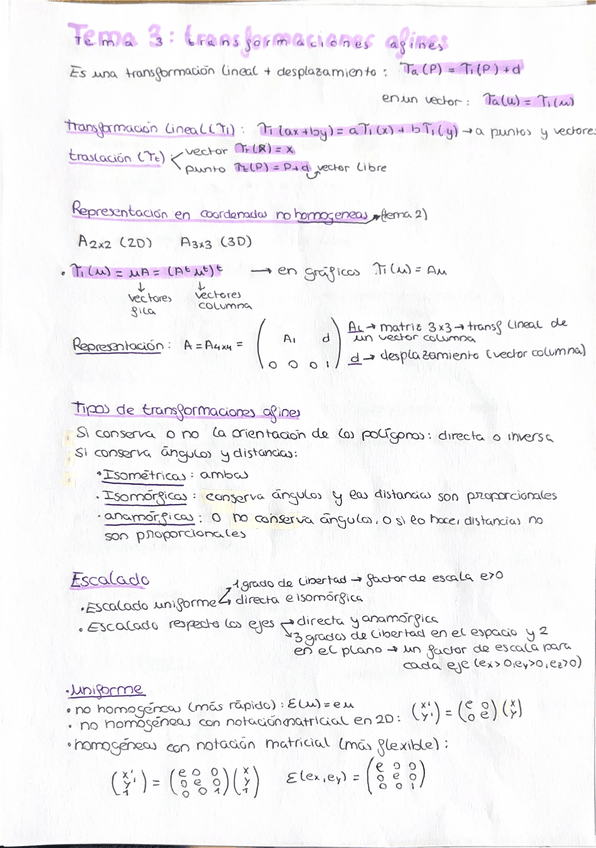 Tema 3: transformaciones afines
Es una transformación lineal + desplazamiento: Ta(P) = Tl(P) + d
en un vector: Ta(u) = Tl(u)
transformación lineal (Tl): Tl(ax+by) = aTl(x) + bTl(y) → a puntos y vectores
traslación (Tt) vector Tt(R) = x
punto Tt(P) = P+d vector libre
Representación en coordenadas no homogeneas → (tema 2)
A2x2 (2D) A3x3 (3D)
• Tl(u) = uA = (Aᵗ uᵗ)ᵗ → en gráficos Tl(u) = Au
↓ ↓
vectores vectores
fila columna
Representación: A = A4x4 = ( Al d
0 0 0 1 )
Al → matriz 3x3 → transf lineal de
un vector columna
d → desplazamiento (vector columna)
Tipos de transformaciones afines
Si conserva o no la orientación de los polígonos: directa o inversa
Si conserva ángulos y distancias:
• Isométricas: ambas
• Isomórficas: conserva ángulos y las distancias son proporcionales
• anamórficas: o no conserva ángulos, o si lo hace, distancias no
son proporcionales
Escalado
• Escalado uniforme 1 grado de libertad → factor de escala e>0
directa e isomórfica
• Escalado respecto los ejes → directa y anamórfica
3 grados de libertad en el espacio y 2
en el plano → un factor de escala para
cada eje (ex>0, ey>0, ez>0)
• uniforme
• no homogéneas (más rápido): E(u) = eu
• no homogéneas con notación matricial en 2D: (x' y') = (e 0 0 e) (x y)
• homogéneas con notación matricial (más flexible):
(x' y' 1) = (e 0 0 0 e 0 0 0 1) (x y 1) E(ex, ey) = (e 0 0 0 e 0 0 0 1)